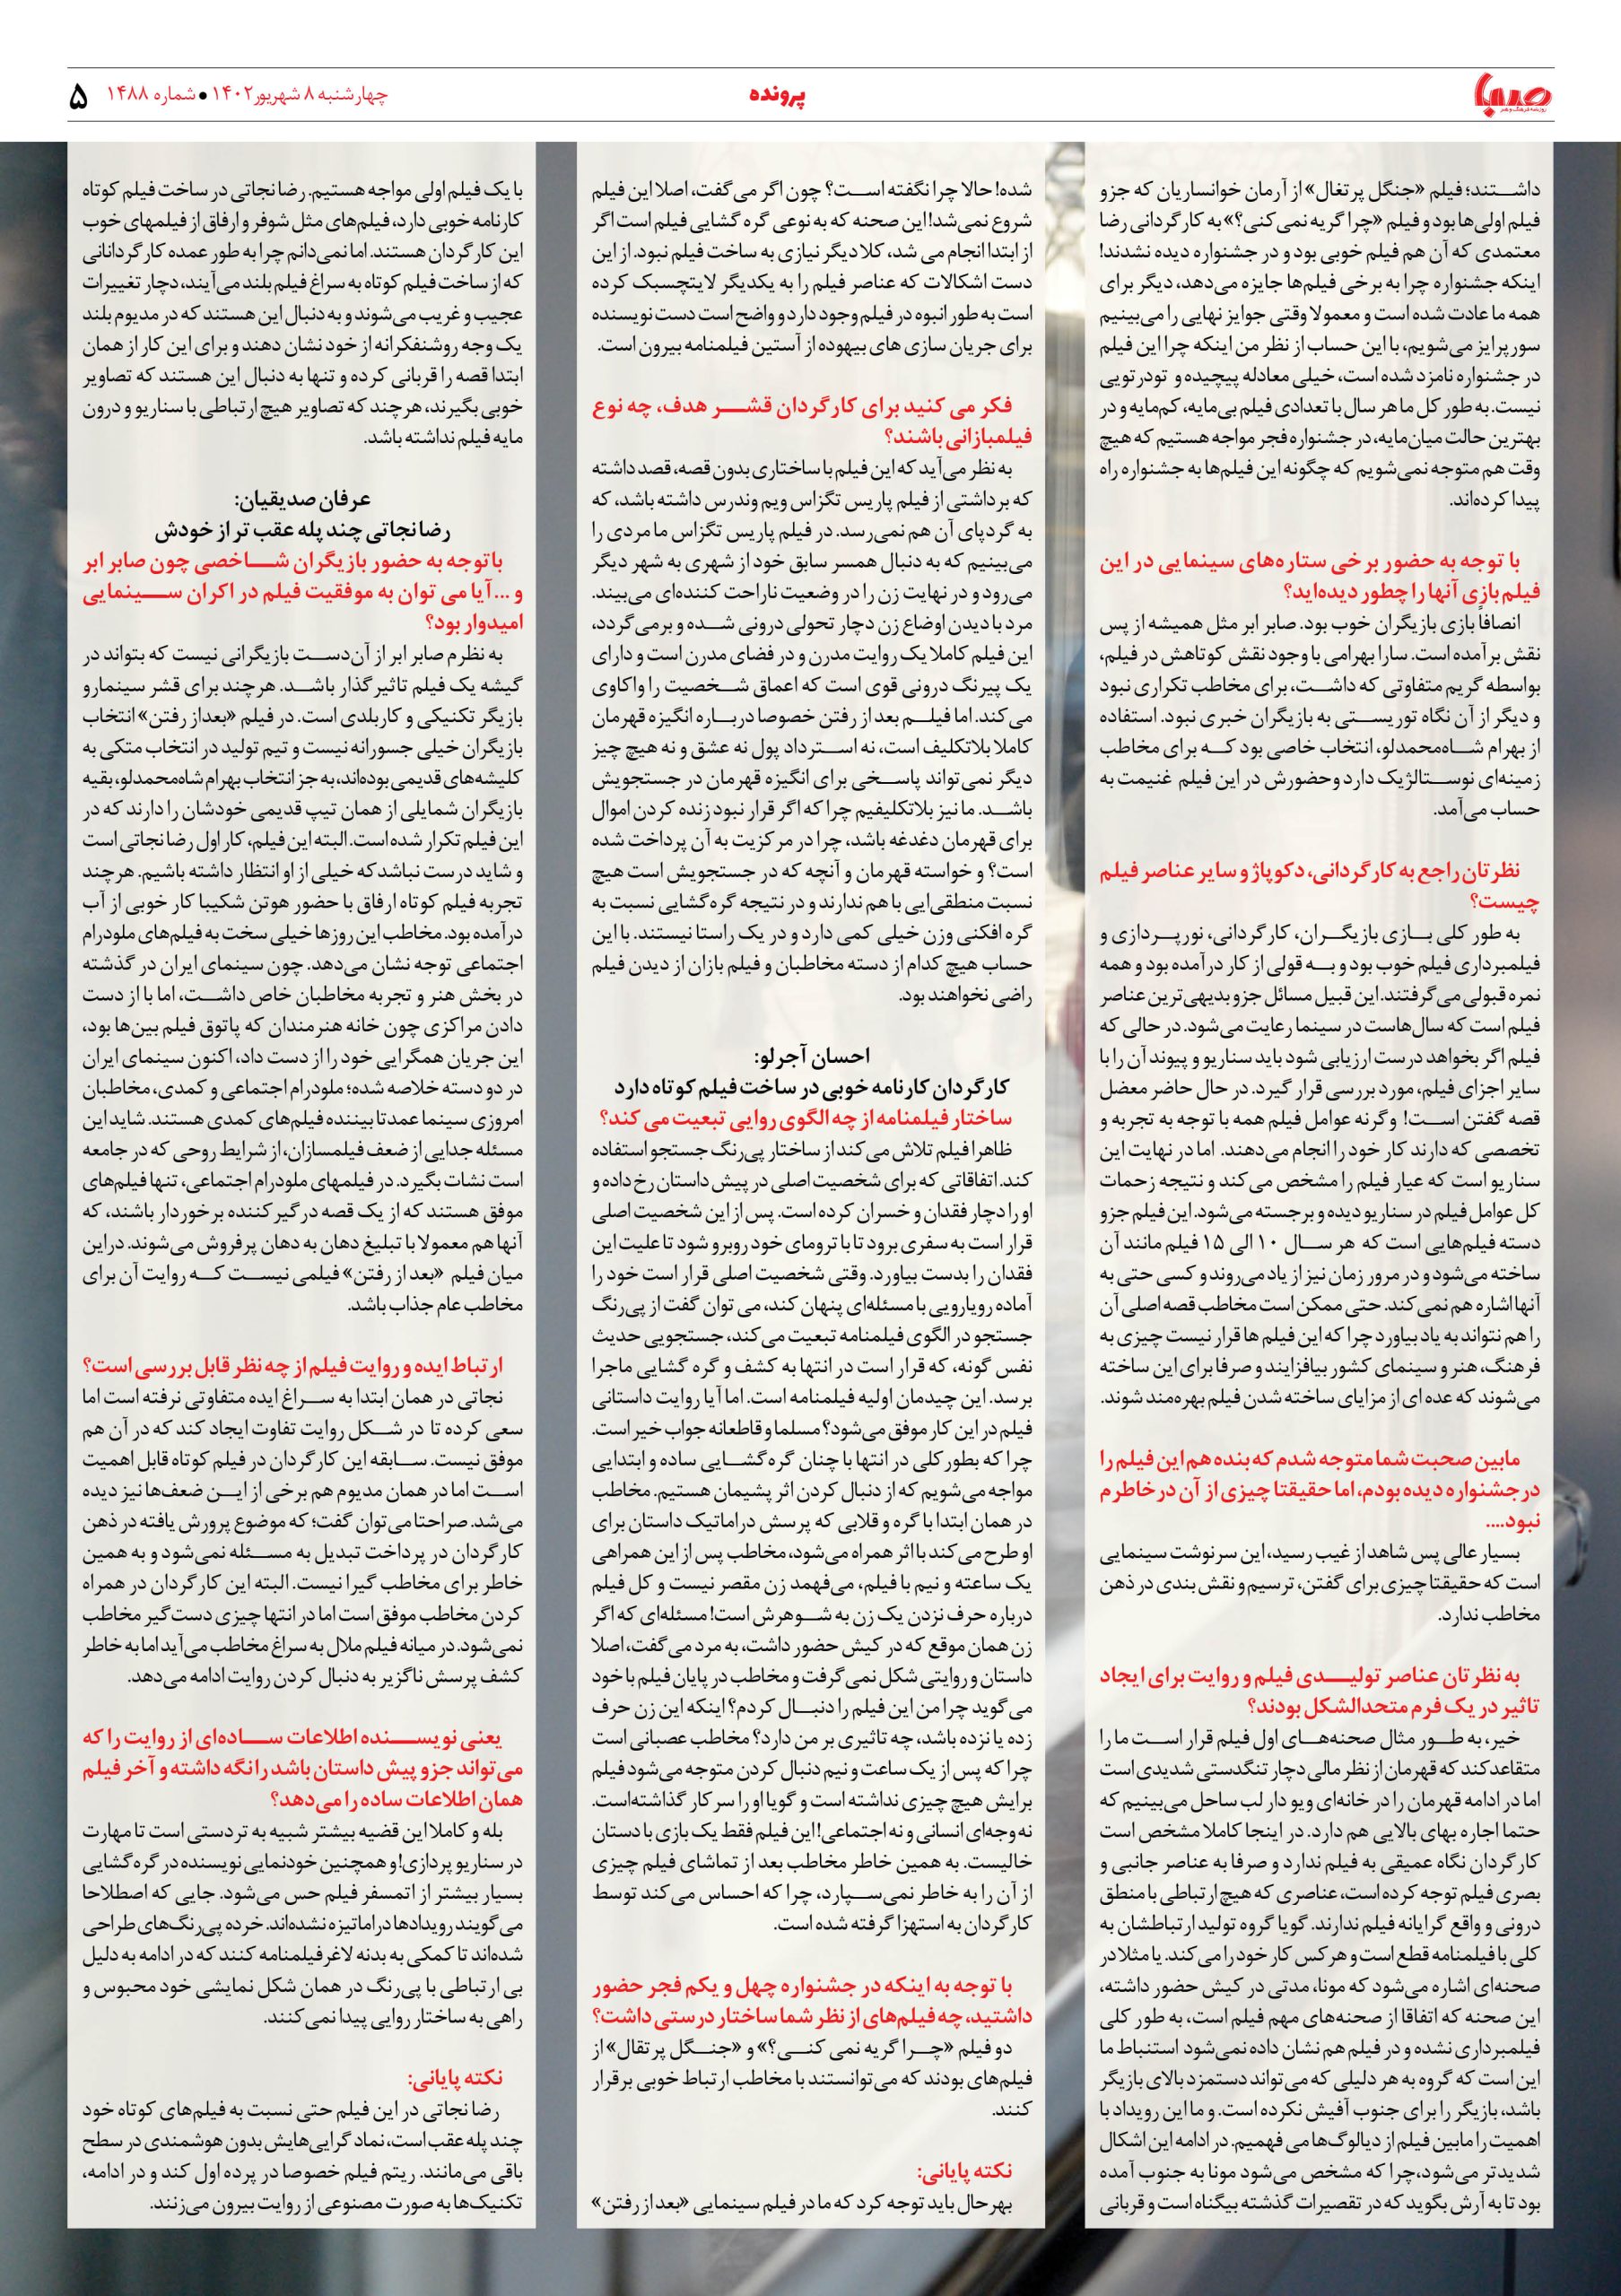 صبا
روزنامه فرهنگ و هنر
پرونده
چهارشنبه ۸ شهریور ۱۴۰۲ ● شماره ۱۴۸۸
۵
داشـــتند؛ فیلم «جنگل پرتغال» از آرمان خوانساریان که جزو
فیلم اولی‌ها بود و فیلم «چرا گریه نمی کنی؟» به کارگردانی رضا
معتمدی که آن هم فیلم خوبی بود و در جشنواره دیده نشدند!
اینکه جشنواره چرا به برخی فیلم‌ها جایزه می‌دهد، دیگر برای
همه ما عادت شده است و معمولا وقتی جوایز نهایی را می‌بینیم
سورپرایز می‌شویم، با این حساب از نظر من اینکه چرا این فیلم
در جشنواره نامزد شده است، خیلی معادله پیچیده و تودرتویی
نیست. به طور کل ما هر سال با تعدادی فیلم بی‌مایه، کم‌مایه و در
بهترین حالت میان‌مایه، در جشنواره فجر مواجه هستیم که هیچ
وقت هم متوجه نمی‌شویم که چگونه این فیلم‌ها به جشنواره راه
پیدا کرده‌اند.
با توجه به حضور برخی ستاره‌های سینمایی در این
فیلم بازی آنها را چطور دیده‌اید؟
انصافاً بازی بازیگران خوب بود. صابر ابر مثل همیشه از پس
نقش برآمده است. سارا بهرامی با وجود نقش کوتاهش در فیلم،
بواسطه گریم متفاوتی که داشـــت، برای مخاطب تکراری نبود
و دیگر از آن نگاه توریســـتی به بازیگران خبری نبود. استفاده
از بهرام شـــاه‌محمدلو، انتخاب خاصی بود کـــه برای مخاطب
زمینه‌ای نوســـتالژیک دارد وحضورش در این فیلم غنیمت به
حساب می‌آمد.
نظرتان راجع به کارگردانی، دکوپاژ و سایر عناصر فیلم
چیست؟
به طور کلی بـــازی بازیگـــران، کارگردانی، نورپـــردازی و
فیلمبرداری فیلم خوب بود و بـــه قولی از کار درآمده بود و همه
نمره قبولی می‌گرفتند. این قبیل مسائل جزو بدیهی‌ترین عناصر
فیلم است که سال‌هاست در سینما رعایت می‌شود. در حالی که
فیلم اگر بخواهد درست ارزیابی شود باید سناریو و پیوند آن را با
سایر اجزای فیلم، مورد بررسی قرار گیرد. در حال حاضر معضل
قصه گفتن اســـت! وگرنه عوامل فیلم همه با توجه به تجربه و
تخصصی که دارند کار خود را انجام می‌دهند. اما در نهایت این
سناریو است که عیار فیلم را مشخص می‌کند و نتیجه زحمات
کل عوامل فیلم در سناریو دیده و برجسته می‌شود. این فیلم جزو
دسته فیلم‌هایی است که هر ســـال ۱۰ الی ۱۵ فیلم مانند آن
ساخته می‌شود و در مرور زمان نیز از یاد می‌روند و کسی حتی به
آنها اشاره هم نمی‌کند. حتی ممکن است مخاطب قصه اصلی آن
را هم نتواند به یاد بیاورد چرا که این فیلم ها قرار نیست چیزی به
فرهنگ، هنر و سینمای کشور بیافزایند و صرفا برای این ساخته
می‌شوند که عده ای از مزایای ساخته شدن فیلم بهره‌مند شوند.
مابین صحبت شما متوجه شدم که بنده هم این فیلم را
در جشنواره دیده بودم، اما حقیقتا چیزی از آن در خاطرم
نبود....
بسیار عالی پس شاهد از غیب رسید، این سرنوشت سینمایی
است که حقیقتا چیزی برای گفتن، ترسیم و نقش بندی در ذهن
مخاطب ندارد.
به نظرتان عناصر تولیـــدی فیلم و روایت برای ایجاد
تاثیر در یک فرم متحدالشکل بودند؟
خیر، به طـــور مثال صحنه‌هـــای اول فیلم قرار اســـت ما را
متقاعد کند که قهرمان از نظر مالی دچار تنگدستی شدیدی است
اما در ادامه قهرمان را در خانه‌ای ویو دار لب ساحل می‌بینیم که
حتما اجاره بهای بالایی هم دارد. در اینجا کاملا مشخص است
کارگردان نگاه عمیقی به فیلم ندارد و صرفا به عناصر جانبی و
بصری فیلم توجه کرده است، عناصری که هیچ ارتباطی با منطق
درونی و واقع گرایانه فیلم ندارند. گویا گروه تولید ارتباطشان به
کلی با فیلمنامه قطع است و هرکس کار خود را می‌کند. یا مثلا در
صحنه‌ای اشاره می‌شود که مونا، مدتی در کیش حضور داشته،
این صحنه که اتفاقا از صحنه‌های مهم فیلم است، به طور کلی
فیلمبرداری نشده و در فیلم هم نشان داده نمی‌شود استنباط ما
این است که گروه به هر دلیلی که می‌تواند دستمزد بالای بازیگر
باشد، بازیگر را برای جنوب آفیش نکرده است. و ما این رویداد با
اهمیت را مابین فیلم از دیالوگ‌ها می فهمیم. در ادامه این اشکال
شدیدتر می‌شود،چرا که مشخص می‌شود مونا به جنوب آمده
بود تا به آرش بگوید که در تقصیرات گذشته بیگناه است و قربانی
شده! حالا چرا نگفته اســـت؟ چون اگر می‌گفت، اصلا این فیلم
شروع نمی‌شد! این صحنه که به نوعی گره گشایی فیلم است اگر
از ابتدا انجام می شد، کلا دیگر نیازی به ساخت فیلم نبود. از این
دست اشکالات که عناصر فیلم را به یکدیگر لایتچسبک کرده
است به طور انبوه در فیلم وجود دارد و واضح است دست نویسنده
برای جریان سازی های بیهوده از آستین فیلمنامه بیرون است.
فکر می کنید برای کارگردان قشـــر هدف، چه نوع
فیلمبازانی باشند؟
به نظر می‌آید که این فیلم با ساختاری بدون قصه، قصد داشته
که برداشتی از فیلم پاریس تگزاس ویم وندرس داشته باشد، که
به گردپای آن هم نمی‌رسد. در فیلم پاریس تگزاس ما مردی را
می‌بینیم که به دنبال همسر سابق خود از شهری به شهر دیگر
می‌رود و در نهایت زن را در وضعیت ناراحت کننده‌ای می‌بیند.
مرد با دیدن اوضاع زن دچار تحولی درونی شـــده و برمی‌گردد،
این فیلم کاملا یک روایت مدرن و در فضای مدرن است و دارای
یک پیرنگ درونی قوی است که اعماق شـــخصیت را واکاوی
می‌کند. اما فیلـــم بعد از رفتن خصوصا دربـــاره انگیزه قهرمان
کاملا بلاتکلیف است، نه اســـترداد پول نه عشق و نه هیچ چیز
دیگر نمی‌تواند پاســـخی برای انگیزه قهرمان در جستجویش
باشـــد. ما نیز بلاتکلیفیم چرا که اگر قرار نبود زنده کردن اموال
برای قهرمان دغدغه باشد، چرا در مرکزیت به آن پرداخت شده
است؟ و خواسته قهرمان و آنچه که در جستجویش است هیچ
نسبت منطقی‌ایی با هم ندارند و در نتیجه گره‌گشایی نسبت به
گره افکنی وزن خیلی کمی دارد و در یک راستا نیستند. با این
حساب هیچ کدام از دسته مخاطبان و فیلم بازان از دیدن فیلم
راضی نخواهند بود.
احسان آجرلو:
کارگردان کارنامه خوبی در ساخت فیلم کوتاه دارد
ساختار فیلمنامه از چه الگوی روایی تبعیت می کند؟
ظاهرا فیلم تلاش می‌کند از ساختار پی‌رنگ جستجو استفاده
کند. اتفاقاتی که برای شخصیت اصلی در پیش داستان رخ داده و
او را دچار فقدان و خسران کرده است. پس از این شخصیت اصلی
قرار است به سفری برود تا با ترومای خود روبرو شود تا علیت این
فقدان را بدست بیاورد. وقتی شخصیت اصلی قرار است خود را
آماده رویارویی با مسئله‌ای پنهان کند، می توان گفت از پی‌رنگ
جستجو در الگوی فیلمنامه تبعیت می‌کند، جستجویی حدیث
نفس گونه، که قرار است در انتها به کشف و گره گشایی ماجرا
برسد. این چیدمان اولیه فیلمنامه است. اما آیا روایت داستانی
فیلم در این کار موفق می‌شود؟ مسلما و قاطعانه جواب خیر است.
چرا که بطور کلی در انتها با چنان گره‌گشـــایی ساده و ابتدایی
مواجه می‌شویم که از دنبال کردن اثر پشیمان هستیم. مخاطب
در همان ابتدا با گره و قلابی که پرسش دراماتیک داستان برای
او طرح می‌کند با اثر همراه می‌شود، مخاطب پس از این همراهی
یک ساعته و نیم با فیلم، می‌فهمد زن مقصر نیست و کل فیلم
درباره حرف نزدن یک زن به شـــوهرش است! مسئله‌ای که اگر
زن همان موقع که در کیش حضور داشت، به مرد می‌گفت، اصلا
داستان و روایتی شکل نمی‌گرفت و مخاطب در پایان فیلم با خود
می گوید چرا من این فیلم را دنبـــال کردم؟ اینکه این زن حرف
زده یا نزده باشد، چه تاثیری بر من دارد؟ مخاطب عصبانی است
چرا که پس از یک ساعت و نیم دنبال کردن متوجه می‌شود فیلم
برایش هیچ چیزی نداشته است و گویا او را سر کار گذاشته‌است.
نه وجه‌ای انسانی و نه اجتماعی! این فیلم فقط یک بازی با دستان
خالیست. به همین خاطر مخاطب بعد از تماشای فیلم چیزی
از آن را به خاطر نمی‌ســـپارد، چرا که احساس می‌کند توسط
کارگردان به استهزا گرفته شده است.
با توجه به اینکه در جشنواره چهل و یکم فجر حضور
داشتید، چه فیلم‌های از نظر شما ساختار درستی داشت؟
دو فیلم «چـــرا گریه نمی کنـــی؟» و «جنـــگل پرتقال» از
فیلم‌های بودند که می‌توانستند با مخاطب ارتباط خوبی برقرار
کنند.
نکته پایانی:
بهرحال باید توجه کرد که ما در فیلم سینمایی «بعد از رفتن»
با یک فیلم اولی مواجه هستیم. رضا نجاتی در ساخت فیلم کوتاه
کارنامه خوبی دارد، فیلم‌های مثل شوفر و ارفاق از فیلمهای خوب
این کارگردان هستند. اما نمی‌دانم چرا به طور عمده کارگردانانی
که از ساخت فیلم کوتاه به سراغ فیلم بلند می‌آیند، دچار تغییرات
عجیب و غریب می‌شوند و به دنبال این هستند که در مدیوم بلند
یک وجه روشنفکرانه از خود نشان دهند و برای این کار از همان
ابتدا قصه را قربانی کرده و تنها به دنبال این هستند که تصاویر
خوبی بگیرند، هرچند که تصاویر هیچ ارتباطی با سناریو و درون
مایه فیلم نداشته باشد.
عرفان صدیقیان:
رضا نجاتی چند پله عقب تر از خودش
باتوجه به حضور بازیگران شـــاخصی چون صابر ابر
و ... آیا می توان به موفقیت فیلم در اکران ســـینمایی
امیدوار بود؟
به نظرم صابر ابر از آن‌دســـت بازیگرانی نیست که بتواند در
گیشه یک فیلم تاثیرگذار باشـــد. هرچند برای قشر سینمارو
بازیگر تکنیکی و کاربلدی است. در فیلم «بعد از رفتن» انتخاب
بازیگران خیلی جسورانه نیست و تیم تولید در انتخاب متکی به
کلیشه‌های قدیمی بوده‌اند، به جز انتخاب بهرام شاه‌محمدلو، بقیه
بازیگران شمایلی از همان تیپ قدیمی خودشان را دارند که در
این فیلم تکرار شده است. البته این فیلم، کار اول رضا نجاتی است
و شاید درست نباشد که خیلی از او انتظار داشته باشیم. هرچند
تجربه فیلم کوتاه ارفاق با حضور هوتن شکیبا کار خوبی از آب
درآمده بود. مخاطب این روزها خیلی سخت به فیلم‌های ملودرام
اجتماعی توجه نشان می‌دهد. چون سینمای ایران در گذشته
در بخش هنر و تجربه مخاطبان خاص داشـــت، اما با از دست
دادن مراکزی چون خانه هنرمندان که پاتوق فیلم بین‌ها بود،
این جریان همگرایی خود را از دست داد، اکنون سینمای ایران
در دو دسته خلاصه شده؛ ملودرام اجتماعی و کمدی، مخاطبان
امروزی سینما عمدتا بیننده فیلم‌های کمدی هستند. شاید این
مسئله جدایی از ضعف فیلمسازان، از شرایط روحی که در جامعه
است نشات بگیرد. در فیلمهای ملودرام اجتماعی، تنها فیلم‌های
موفق هستند که از یک قصه درگیر کننده برخوردار باشند، که
آنها هم معمولا با تبلیغ دهان به دهان پرفروش می‌شوند. دراین
میان فیلم «بعد از رفتن» فیلمی نیســـت کـــه روایت آن برای
مخاطب عام جذاب باشد.
ارتباط ایده و روایت فیلم از چه نظر قابل بررسی است؟
نجاتی در همان ابتدا به ســـراغ ایده متفاوتی نرفته است اما
سعی کرده تا در شـــکل روایت تفاوت ایجاد کند که در آن هم
موفق نیست. ســـابقه این کارگردان در فیلم کوتاه قابل اهمیت
اســـت اما در همان مدیوم هم برخی از ایـــن ضعف‌ها نیز دیده
می‌شد. صراحتا می‌توان گفت؛ که موضوع پرورش یافته در ذهن
کارگردان در پرداخت تبدیل به مســـئله نمی‌شود و به همین
خاطر برای مخاطب گیرا نیست. البته این کارگردان در همراه
کردن مخاطب موفق است اما در انتها چیزی دست‌گیر مخاطب
نمی‌شود. در میانه فیلم ملال به سراغ مخاطب می‌آید اما به خاطر
کشف پرسش ناگزیر به دنبال کردن روایت ادامه می‌دهد.
یعنی نویســـنده اطلاعات ســـاده‌ای از روایت را که
می‌تواند جزو پیش داستان باشد را نگه داشته و آخر فیلم
همان اطلاعات ساده را می‌دهد؟
بله و کاملا این قضیه بیشتر شبیه به تردستی است تا مهارت
در سناریو پردازی! و همچنین خودنمایی نویسنده در گره گشایی
بسیار بیشتر از اتمسفر فیلم حس می‌شود. جایی که اصطلاحا
می‌گویند رویدادها دراماتیزه نشده‌اند. خرده پی‌رنگ‌های طراحی
شده‌اند تا کمکی به بدنه لاغر فیلمنامه کنند که در ادامه به دلیل
بی ارتباطی با پی‌رنگ در همان شکل نمایشی خود محبوس و
راهی به ساختار روایی پیدا نمی‌کنند.
نکته پایانی:
رضا نجاتی در این فیلم حتی نسبت به فیلم‌های کوتاه خود
چند پله عقب است، نماد گرایی‌هایش بدون هوشمندی در سطح
باقی می‌مانند. ریتم فیلم خصوصا در پرده اول کند و در ادامه،
تکنیک‌ها به صورت مصنوعی از روایت بیرون می‌زنند.